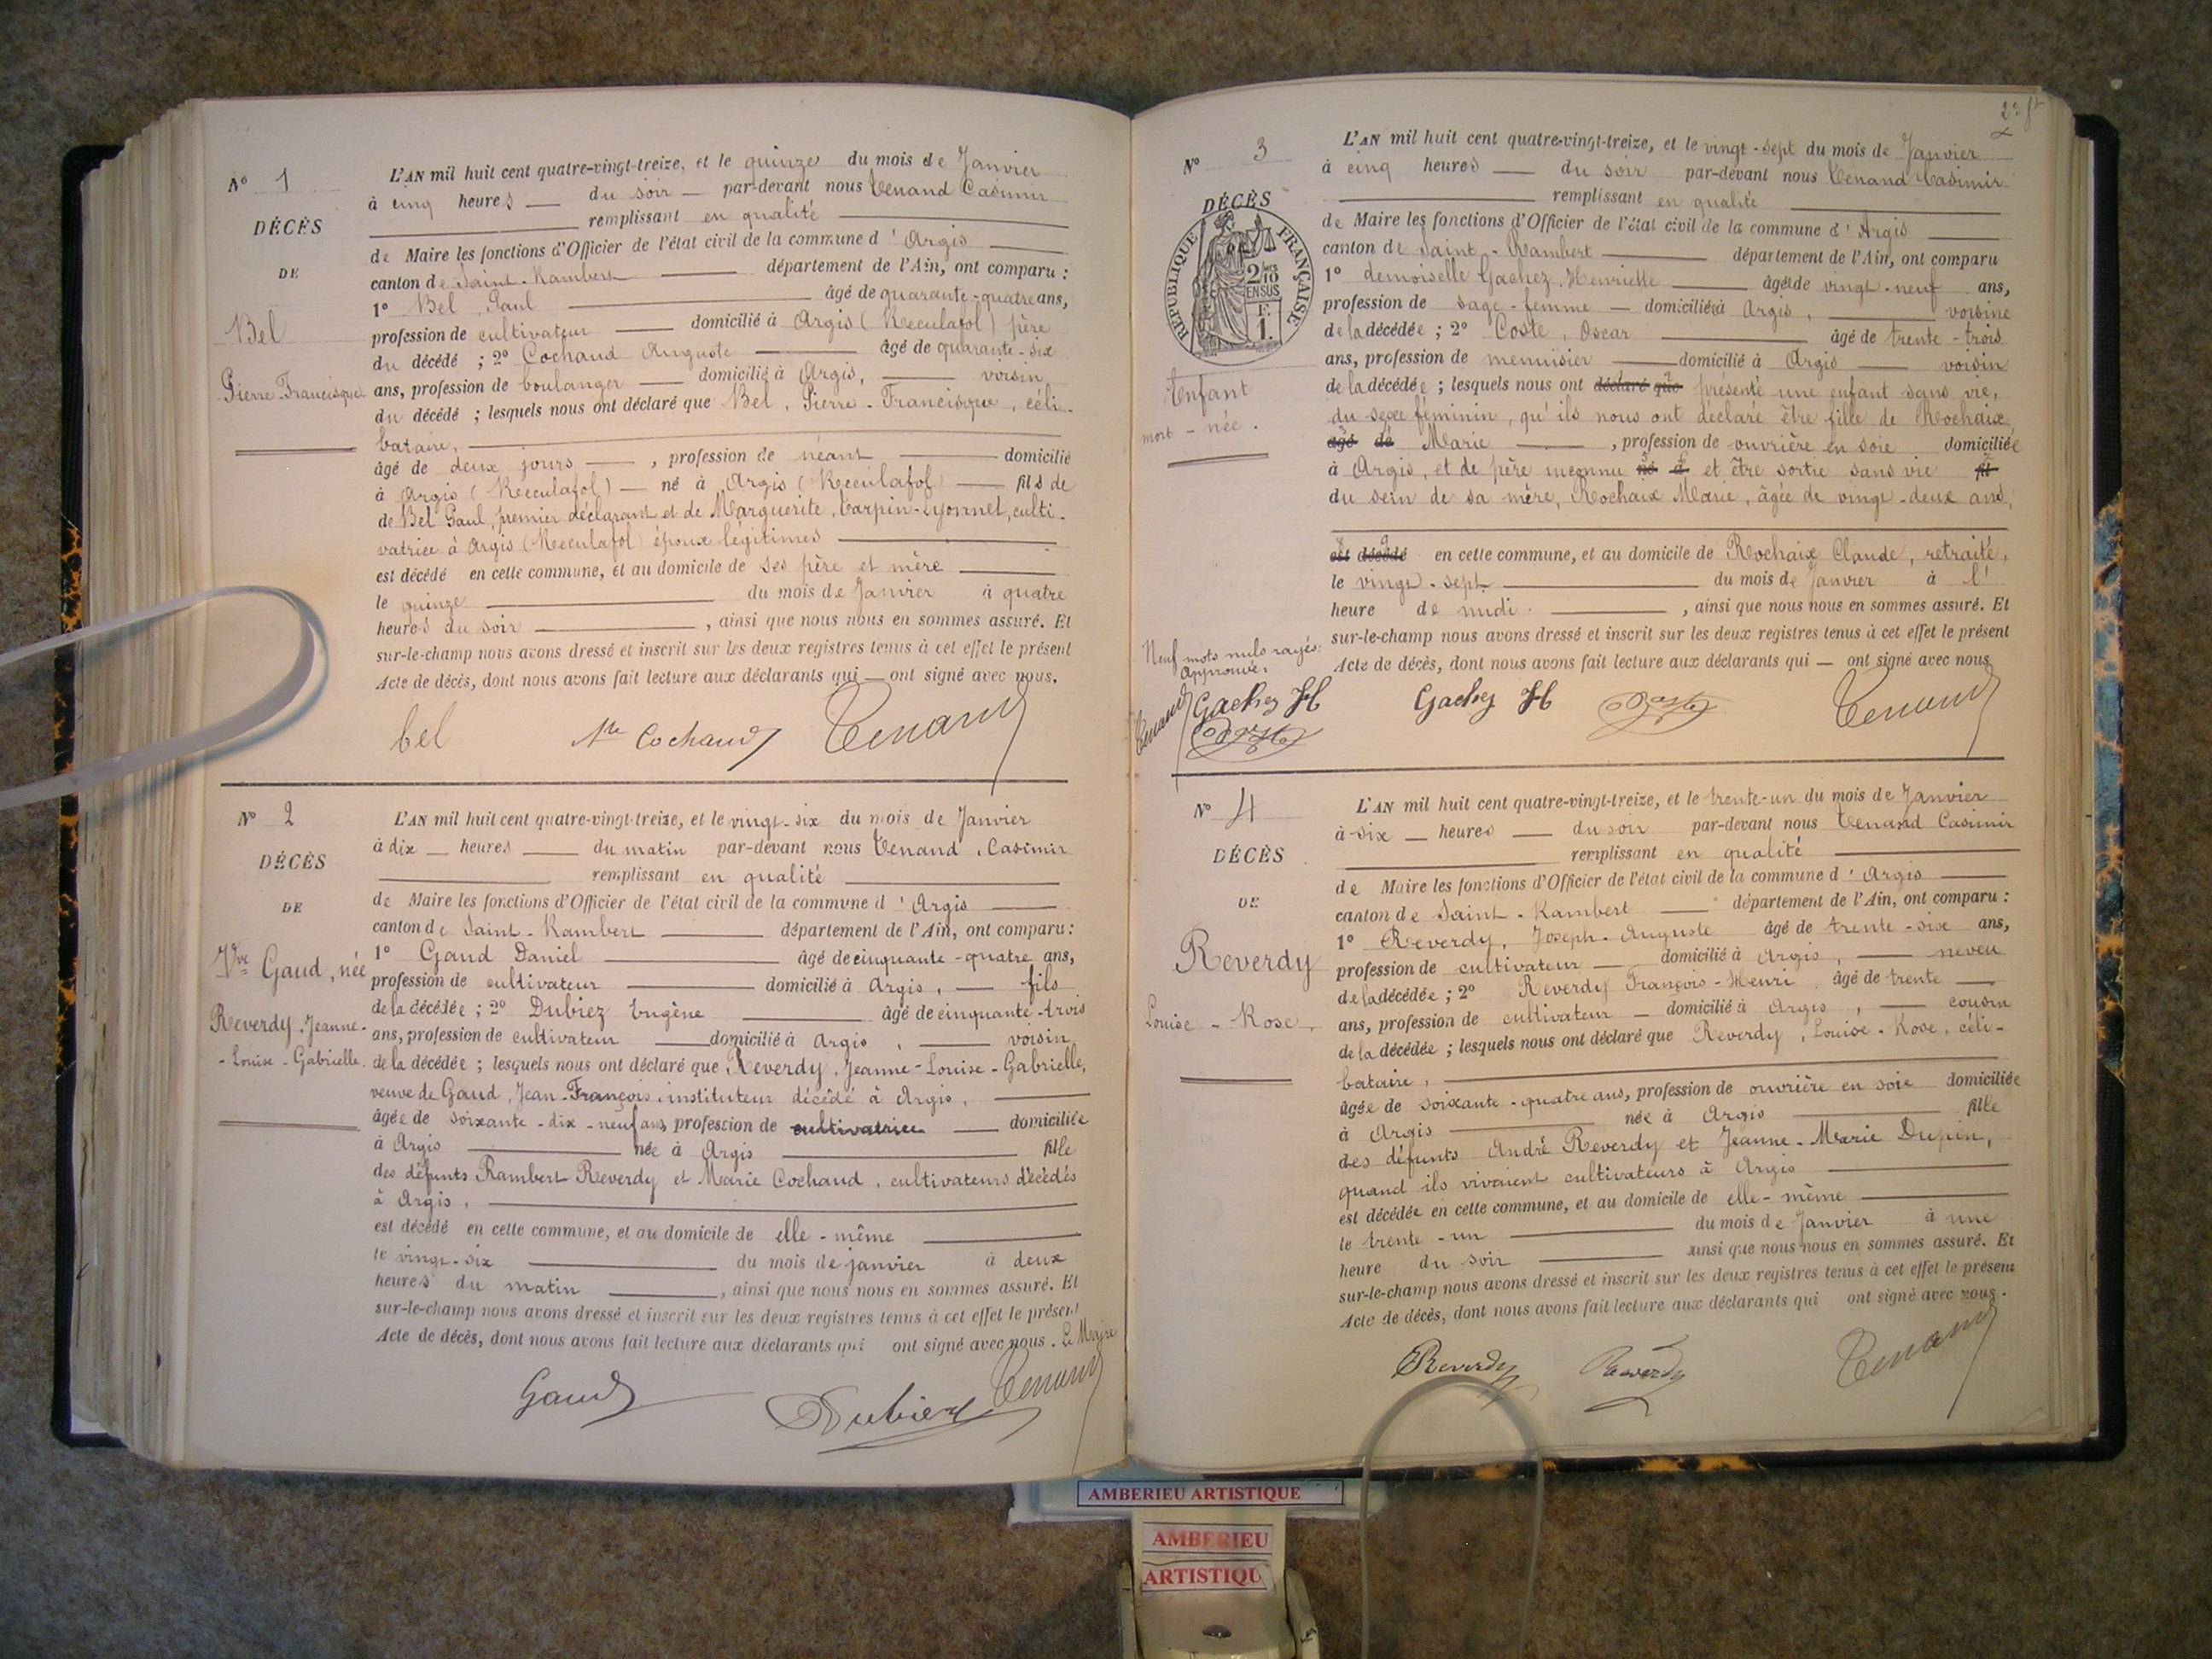 N° 1
DÉCÈS
DE
Bel
Pierre-Francisque
L'AN mil huit cent quatre-vingt-treize, et le quinze du mois de Janvier
à cinq heures du soir par-devant nous Tenand Casimir
remplissant en qualité
de Maire les fonctions d'Officier de l'état civil de la commune d'Argis
canton de Saint-Rambert département de l'Ain, ont comparu :
1° Bel, Paul âgé de quarante-quatre ans,
profession de cultivateur domicilié à Argis (Reculafol) père
du décédé ; 2° Cochaud Auguste âgé de quarante-six
ans, profession de boulanger domicilié à Argis, voisin
du décédé ; lesquels nous ont déclaré que Bel, Pierre-Francisque, céli-
bataire,
âgé de deux jours, profession de néant domicilié
à Argis (Reculafol) né à Argis (Reculafol) fils de
de Bel Paul, premier déclarant et de Marguerite, Carpin-Lyonnet, culti-
vatrice à Argis (Reculafol) époux légitimes
est décédé en cette commune, et au domicile de ses père et mère
le quinze du mois de Janvier à quatre
heures du soir, ainsi que nous nous en sommes assuré. Et
sur-le-champ nous avons dressé et inscrit sur les deux registres tenus à cet effet le présent
Acte de décès, dont nous avons fait lecture aux déclarants qui ont signé avec nous.
bel Cochaud Tenand
N° 2
DÉCÈS
DE
Vve Gaud, née
Reverdy Jeanne-
-Louise-Gabrielle.
L'AN mil huit cent quatre-vingt-treize, et le vingt-six du mois de Janvier
à dix heures du matin par-devant nous Tenand, Casimir
remplissant en qualité
de Maire les fonctions d'Officier de l'état civil de la commune d'Argis
canton de Saint-Rambert département de l'Ain, ont comparu :
1° Gaud Daniel âgé de cinquante-quatre ans,
profession de cultivateur domicilié à Argis, fils
de la décédée ; 2° Dubiez Eugène âgé de cinquante-trois
ans, profession de cultivateur domicilié à Argis, voisin
de la décédée ; lesquels nous ont déclaré que Reverdy, Jeanne-Louise-Gabrielle,
veuve de Gaud, Jean-François, instituteur décédé à Argis,
âgée de soixante-dix-neuf ans, profession de cultivatrice domiciliée
à Argis née à Argis fille
des défunts Rambert Reverdy et Marie Cochaud, cultivateurs décédés
à Argis,
est décédé en cette commune, et au domicile de elle-même
le vingt-six du mois de janvier à deux
heures du matin, ainsi que nous nous en sommes assuré. Et
sur-le-champ nous avons dressé et inscrit sur les deux registres tenus à cet effet le présent
Acte de décès, dont nous avons fait lecture aux déclarants qui ont signé avec nous. Le Maire
Gaud Dubiez Tenand
N° 3
DÉCÈS
RÉPUBLIQUE FRANÇAISE
2/10
EN SUS
F.
1.
Enfant
mort-née.
L'AN mil huit cent quatre-vingt-treize, et le vingt-sept du mois de Janvier
à cinq heures du soir par-devant nous Tenand Casimir
remplissant en qualité
de Maire les fonctions d'Officier de l'état civil de la commune d'Argis
canton de Saint-Rambert département de l'Ain, ont comparu
1° demoiselle Gachez, Henriette âgée de vingt-neuf ans,
profession de sage-femme domiciliée à Argis, voisine
de la décédée ; 2° Coste, Oscar âgé de trente-trois
ans, profession de menuisier domicilié à Argis voisin
de la décédée ; lesquels nous ont déclaré que présenté une enfant sans vie,
du sexe féminin, qu'ils nous ont déclaré être fille de Rochaix
âgé de Marie, profession de ouvrière en soie domiciliée
à Argis, et de père inconnu né à et être sortie sans vie fil
du sein de sa mère, Rochaix Marie, âgée de vingt-deux ans,
est décédé en cette commune, et au domicile de Rochaix Claude, retraité,
le vingt-sept du mois de Janvier à l'
heure de midi, ainsi que nous nous en sommes assuré. Et
sur-le-champ nous avons dressé et inscrit sur les deux registres tenus à cet effet le présent
Acte de décès, dont nous avons fait lecture aux déclarants qui ont signé avec nous
Neuf mots nuls rayés:
Approuvé.
Tenand Gachez H
Gachez H Tenand
N° 4
DÉCÈS
DE
Reverdy
Louise-Rose,
L'AN mil huit cent quatre-vingt-treize, et le trente-un du mois de Janvier
à six heures du soir par-devant nous Tenand Casimir
remplissant en qualité
de Maire les fonctions d'Officier de l'état civil de la commune d'Argis
canton de Saint-Rambert département de l'Ain, ont comparu :
1° Reverdy, Joseph-Auguste âgé de trente-six ans,
profession de cultivateur domicilié à Argis, neveu
de la décédée ; 2° Reverdy François-Henri, âgé de trente
ans, profession de cultivateur domicilié à Argis, cousin
de la décédée ; lesquels nous ont déclaré que Reverdy, Louise-Rose, céli-
bataire,
âgée de soixante-quatre ans, profession de ouvrière en soie domiciliée
à Argis née à Argis fille
des défunts André Reverdy et Jeanne-Marie Dupin,
quand ils vivaient cultivateurs à Argis
est décédée en cette commune, et au domicile de elle-même
le trente-un du mois de Janvier à une
heure du soir ainsi que nous nous en sommes assuré. Et
sur-le-champ nous avons dressé et inscrit sur les deux registres tenus à cet effet le présent
Acte de décès, dont nous avons fait lecture aux déclarants qui ont signé avec nous.
Reverdy Reverdy Tenand
AMBERIEU ARTISTIQUE
AMBERIEU
ARTISTIQU